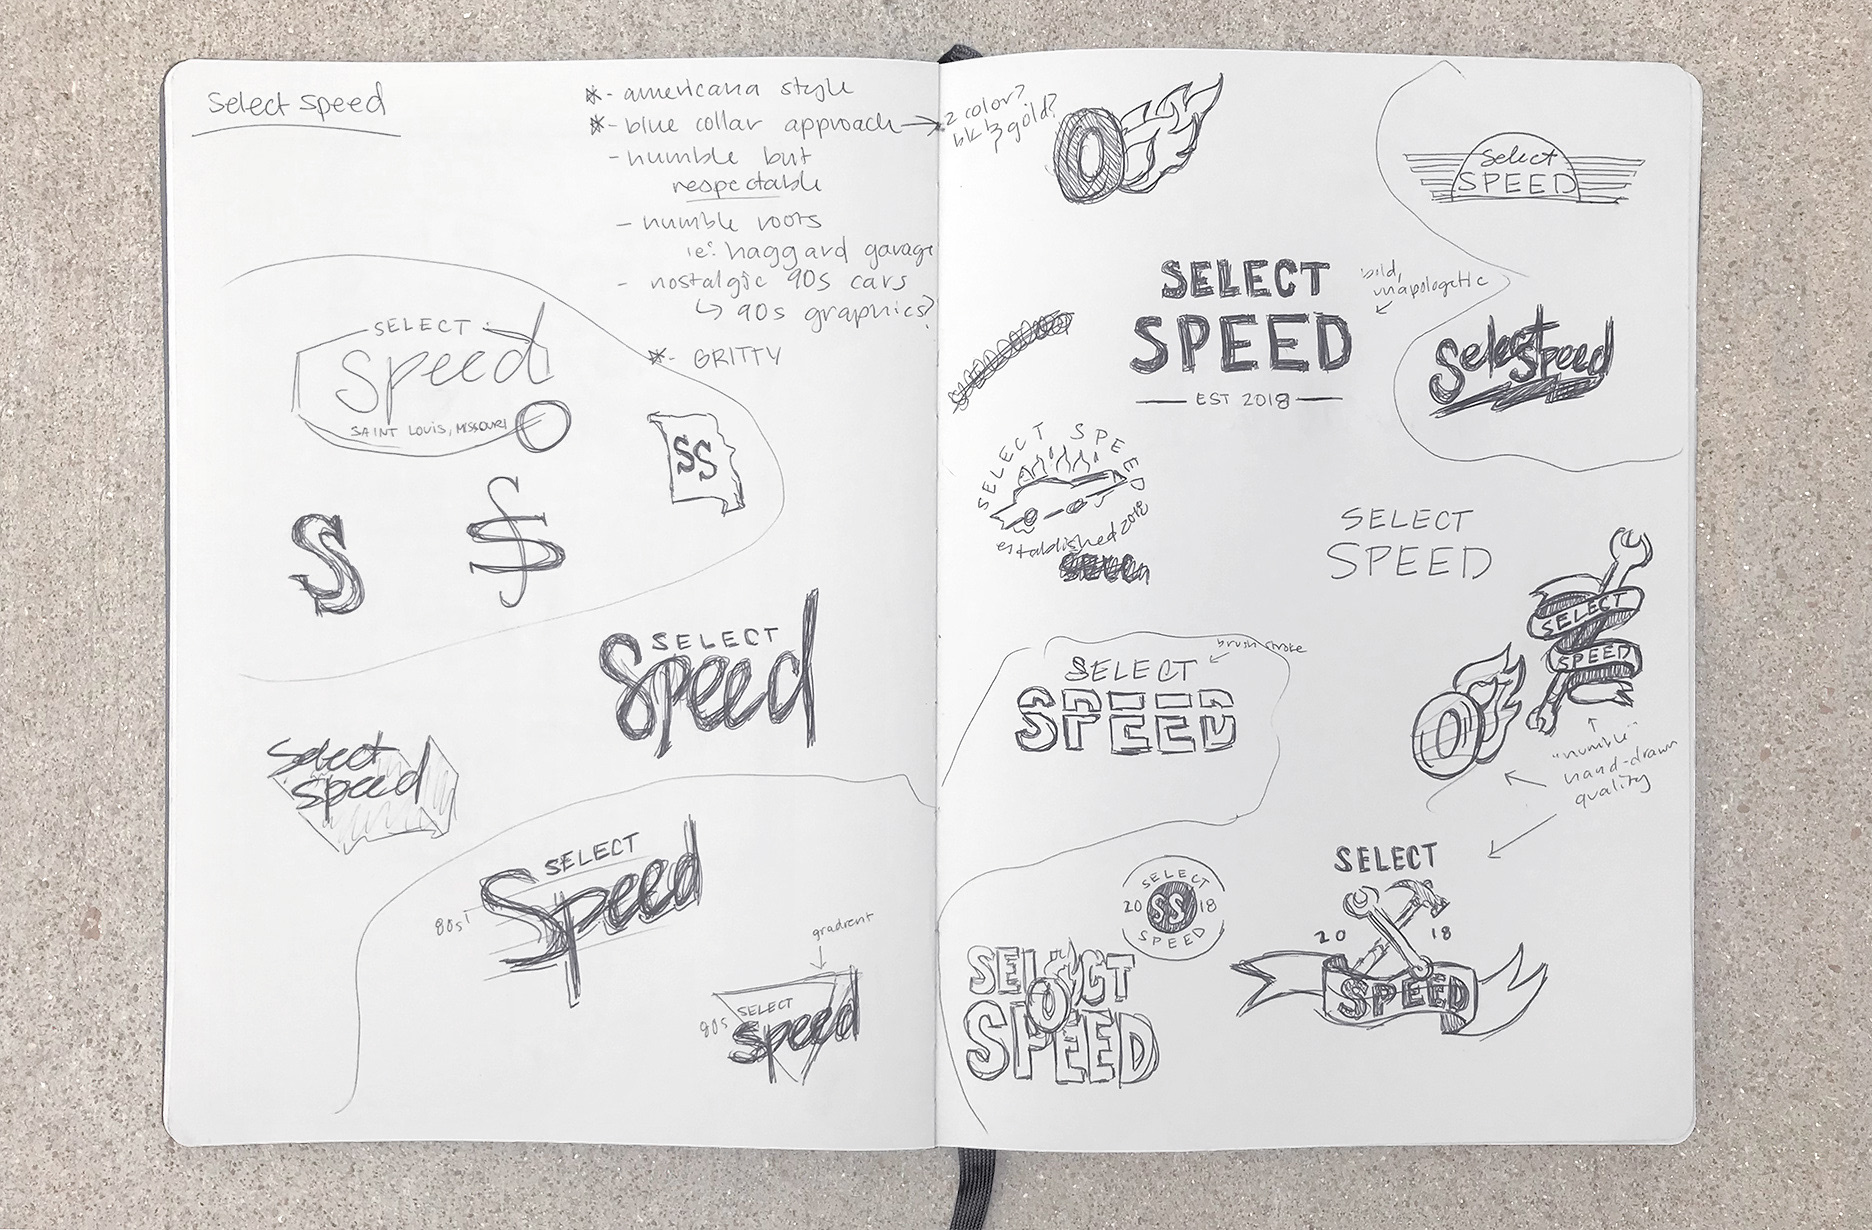 Select Speed
* - americana style
* - blue collar approach →
- humble but
respectable
- humble roots
ie: haggard garage
- nostalgic 90s cars
↳ 90s graphics?
* - GRITTY
SELECT
Speed
SAINT LOUIS, MISSOURI
SS
S
S
SELECT
Speed
Select
Speed
80s
SELECT
Speed
gradient
80s
SELECT
Speed
2 color?
blk & gold?
Select
SPEED
SELECT
SPEED
EST 2018
bold,
unapologetic
Select Speed
SELECT SPEED
established 2018
SELECT
SPEED
SELECT
SPEED
brush stroke
SELECT
SPEED
"humble"
hand-drawn
quality
SELECT
20 SS 18
SPEED
SELECT
SPEED
SELECT
20 18
SPEED